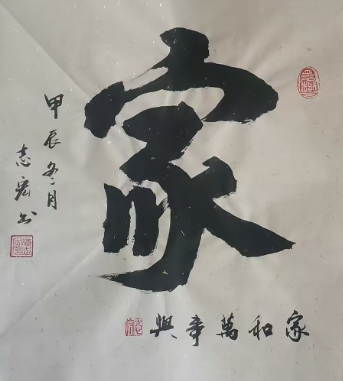 家
家和萬事興
甲辰冬月
志宏书